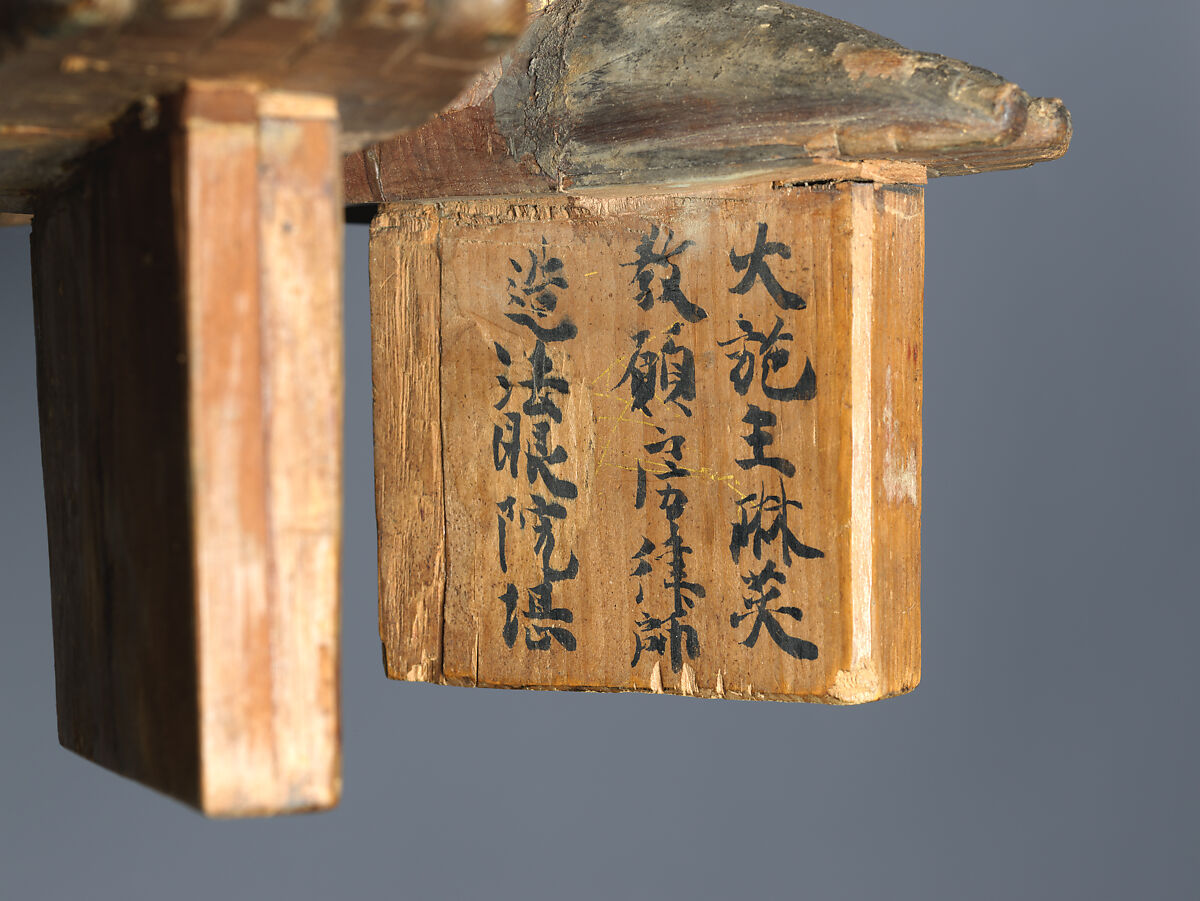 大施主琳英
教願房律師
造法眼院堪